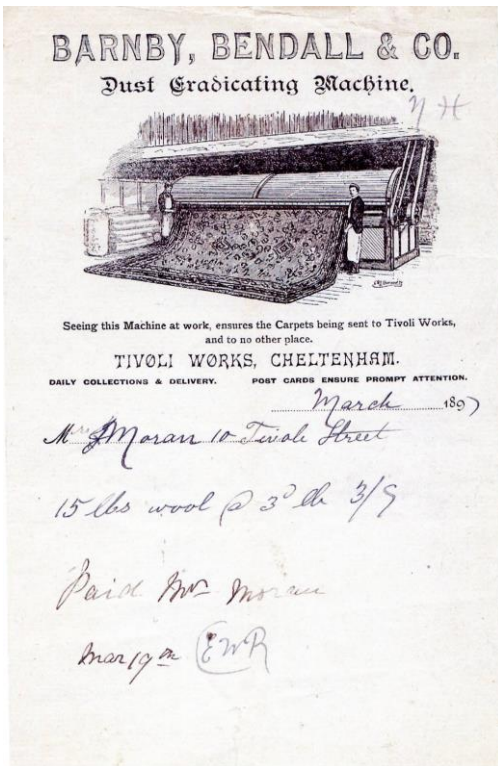 BARNBY, BENDALL & CO.
Dust Eradicating Machine.
Seeing this Machine at work, ensures the Carpets being sent to Tivoli Works,
and to no other place.
TIVOLI WORKS, CHELTENHAM.
DAILY COLLECTIONS & DELIVERY. POST CARDS ENSURE PROMPT ATTENTION.
March 1897
Mrs Moran 10 Tivoli Street
15 lbs wool @ 3d lb 3/9
Paid Mrs Moran
Mar 19th EWR